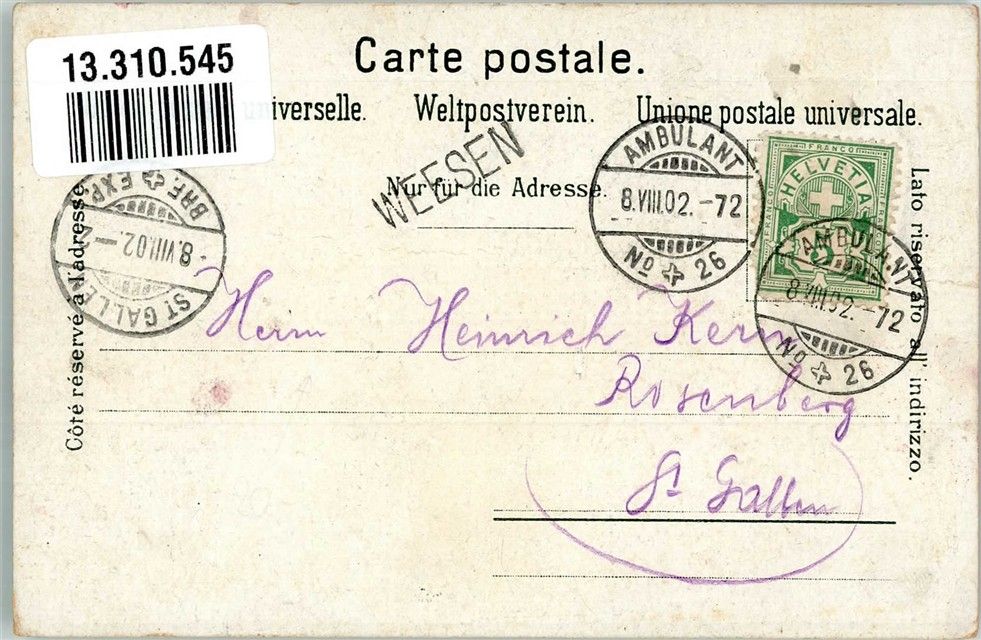 13.310.545
Carte postale.
universelle. Weltpostverein. Unione postale universale.
WEESEN
Nur für die Adresse.
Côté réservé à l'adresse.
Lato riservato all' indirizzo.
AMBULANT
8.VIII.02.-72
No 26
FRANCO
HELVETIA
5
AMBULANT
8.VIII.02.-72
No 26
ST GALLEN
8.VIII.02.-
BRF. EXP.
Herrn Heinrich Kern
Rosenberg
St Gallen